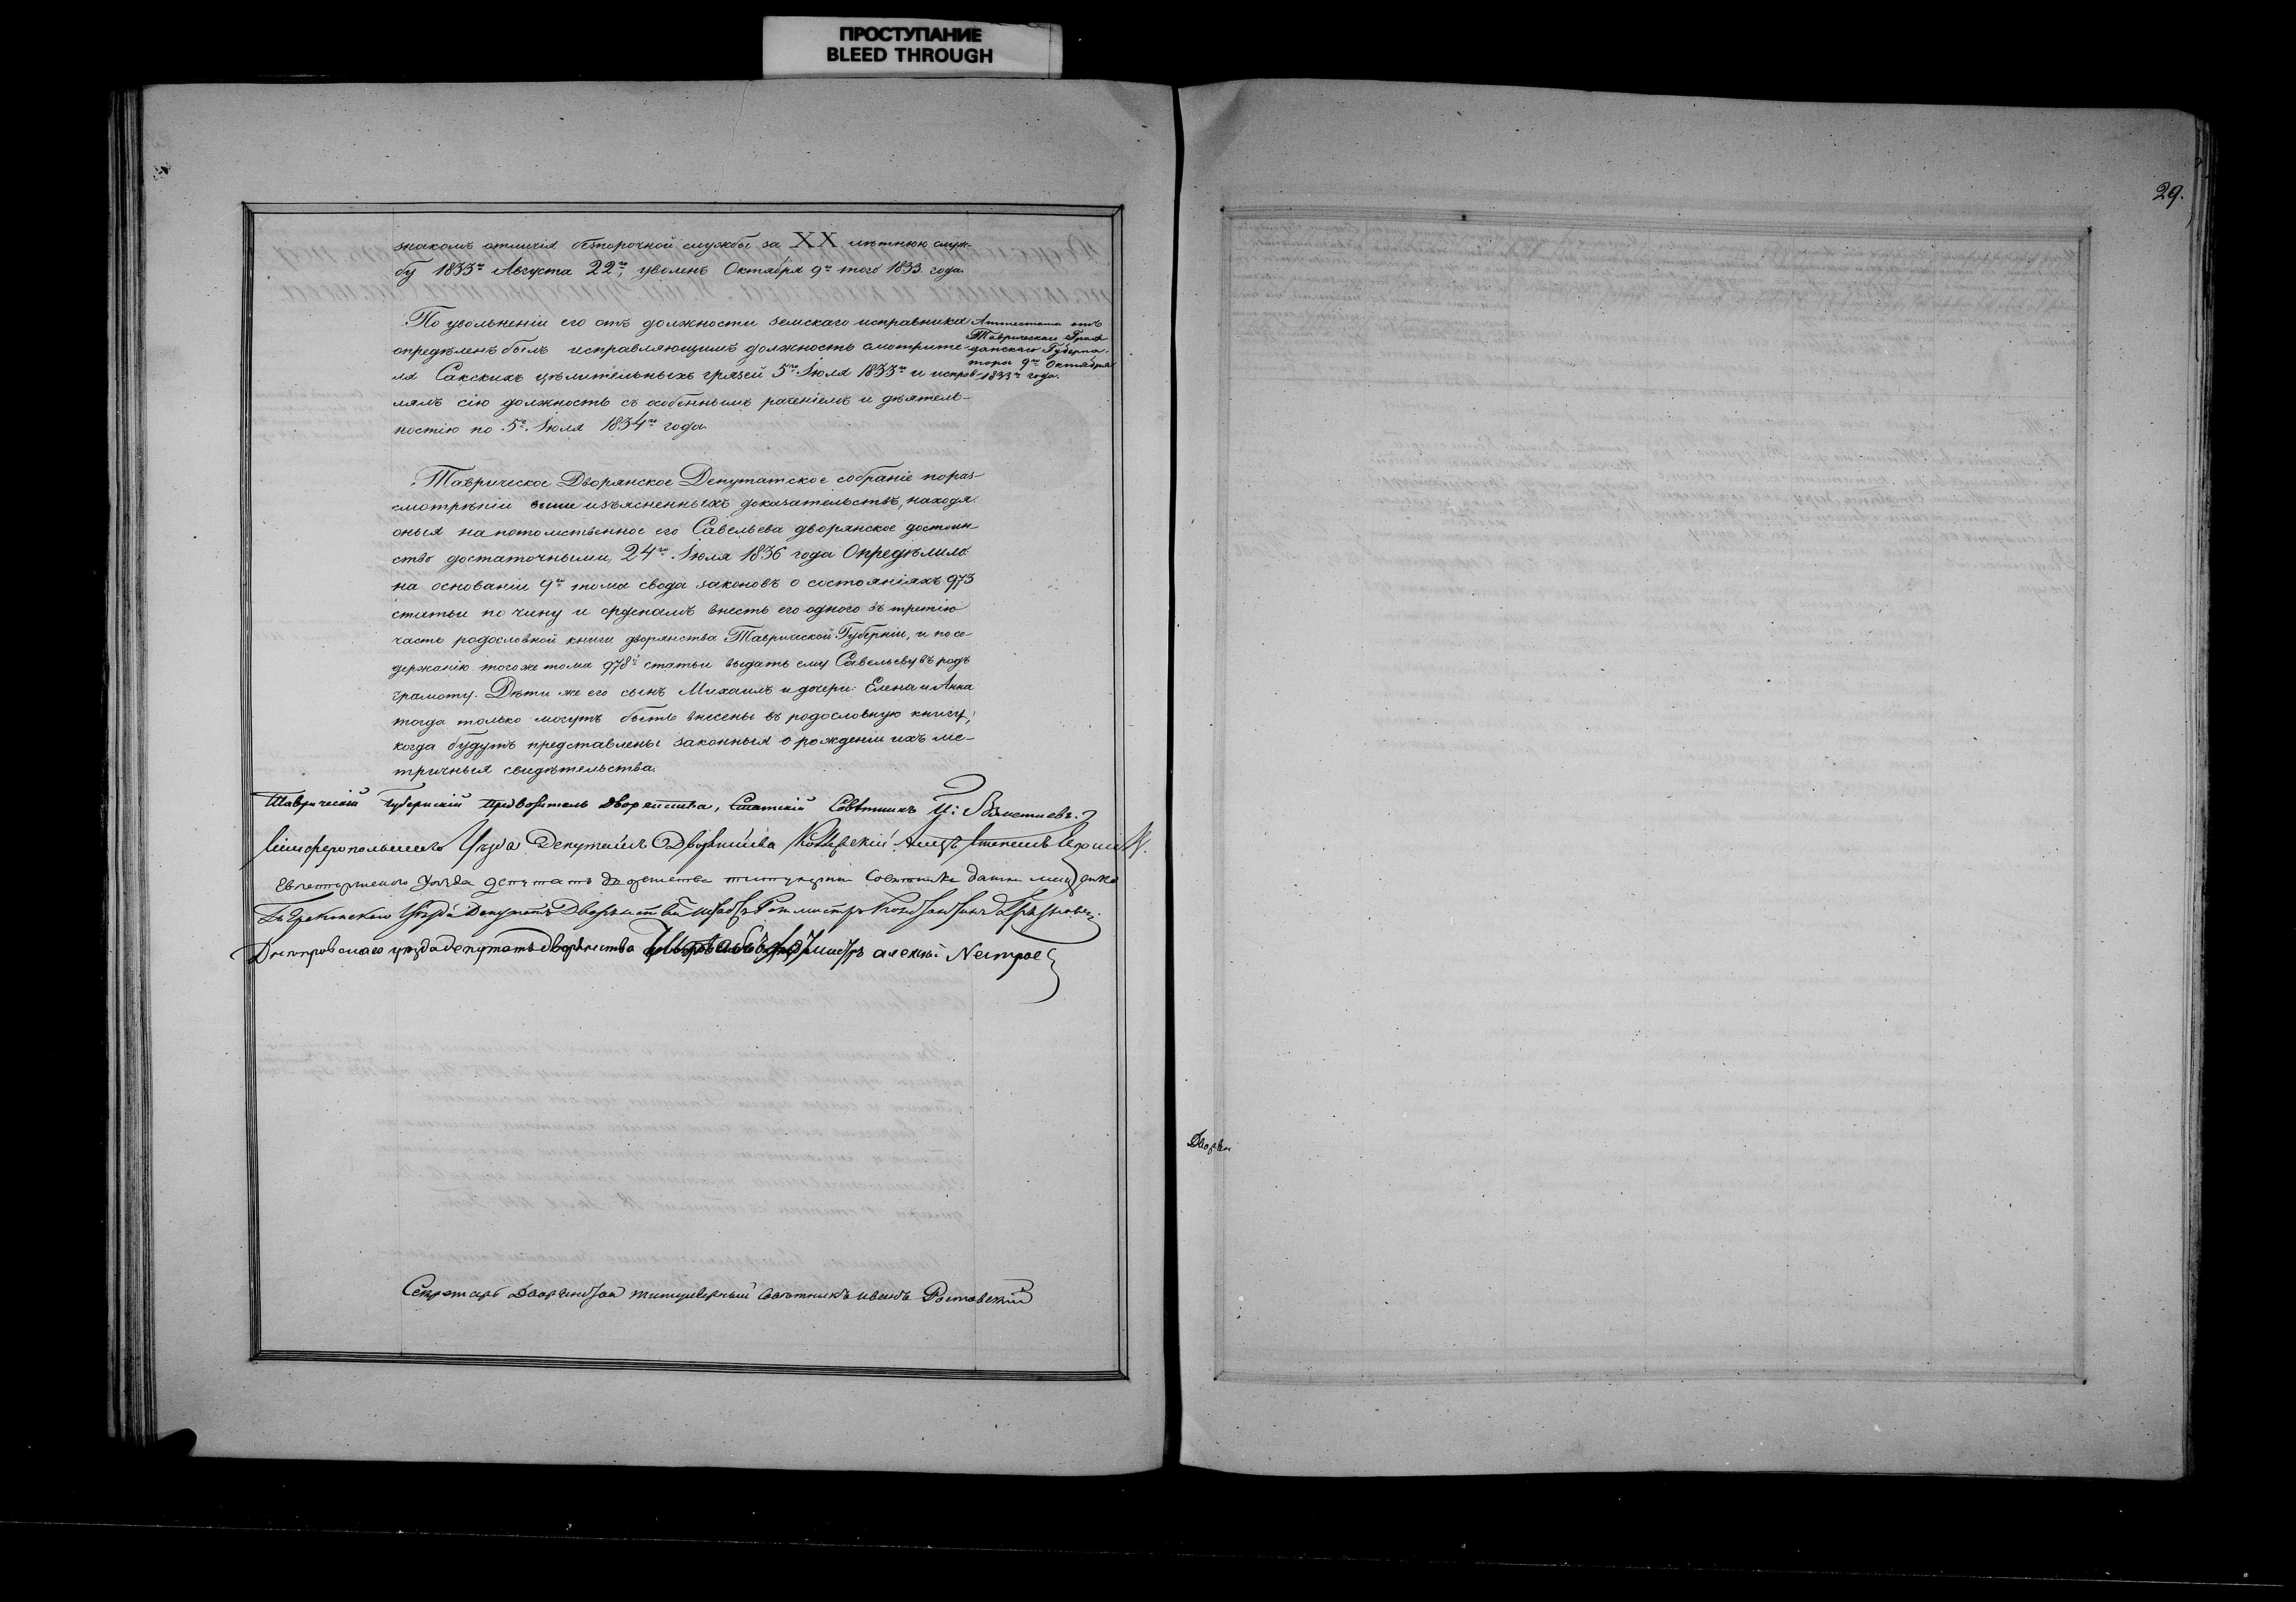 ПРОСТУПАНИЕ
BLEED THROUGH
29.
знакомъ отличія безпорочной службы за XX лѣтнюю служ-
бу 1833го Августа 22го, уволенъ Октября 9го того 1833. года.
По увольненіи его отъ должности земскаго исправника
опредѣленъ былъ исправляющимъ должность смотрите-
ля Сакскихъ цѣлительныхъ грязей 5го Іюля 1833го и исправ-
лялъ сію должность съ особеннымъ раченіемъ и дѣятель-
ностію по 5е Іюля 1834го года.
Аттестатъ отъ
Таврическаго Граж
данскаго Губерна-
тора 9го Октября
1833го года.
Таврическое Дворянское Депутатское собраніе пораз-
смотрѣніи выше изъясненныхъ доказательствъ, находя
оныя на потомственное его Савельева дворянское достоин-
ство достаточными, 24го Іюля 1836 года Опредѣлило:
на основаніи 9го тома свода законовъ о состояніяхъ 973
статьи по чину и орденамъ внесть его одного въ третію
часть родословной книги дворянства Таврической Губерніи, и по со-
держанію того же тома 978й статьи выдать ему Савельеву въ родъ
грамоту. Дѣти же его сынъ Михаилъ и дочери: Елена и Анна
тогда только могутъ быть внесены въ родословную книгу,
когда будутъ представлены законныя о рожденіи ихъ ме-
тричныя свидѣтельства.
Таврическій Губернскій Предводитель Дворянства, Статскій Совѣтникъ
Симферопольскаго Уѣзда Депутатъ Дворянства
Евпаторскаго Уѣзда Депутатъ Дворянства титулярный Совѣтникъ
Перекопскаго Уѣзда Депутатъ Дворянства Штабсъ Ротмистръ
Днепровскаго уѣзда депутатъ дворянства алексѣй Nестрое
Дворян
Секретарь Дворянства титулярный Совѣтникъ иванъ Ростовскій